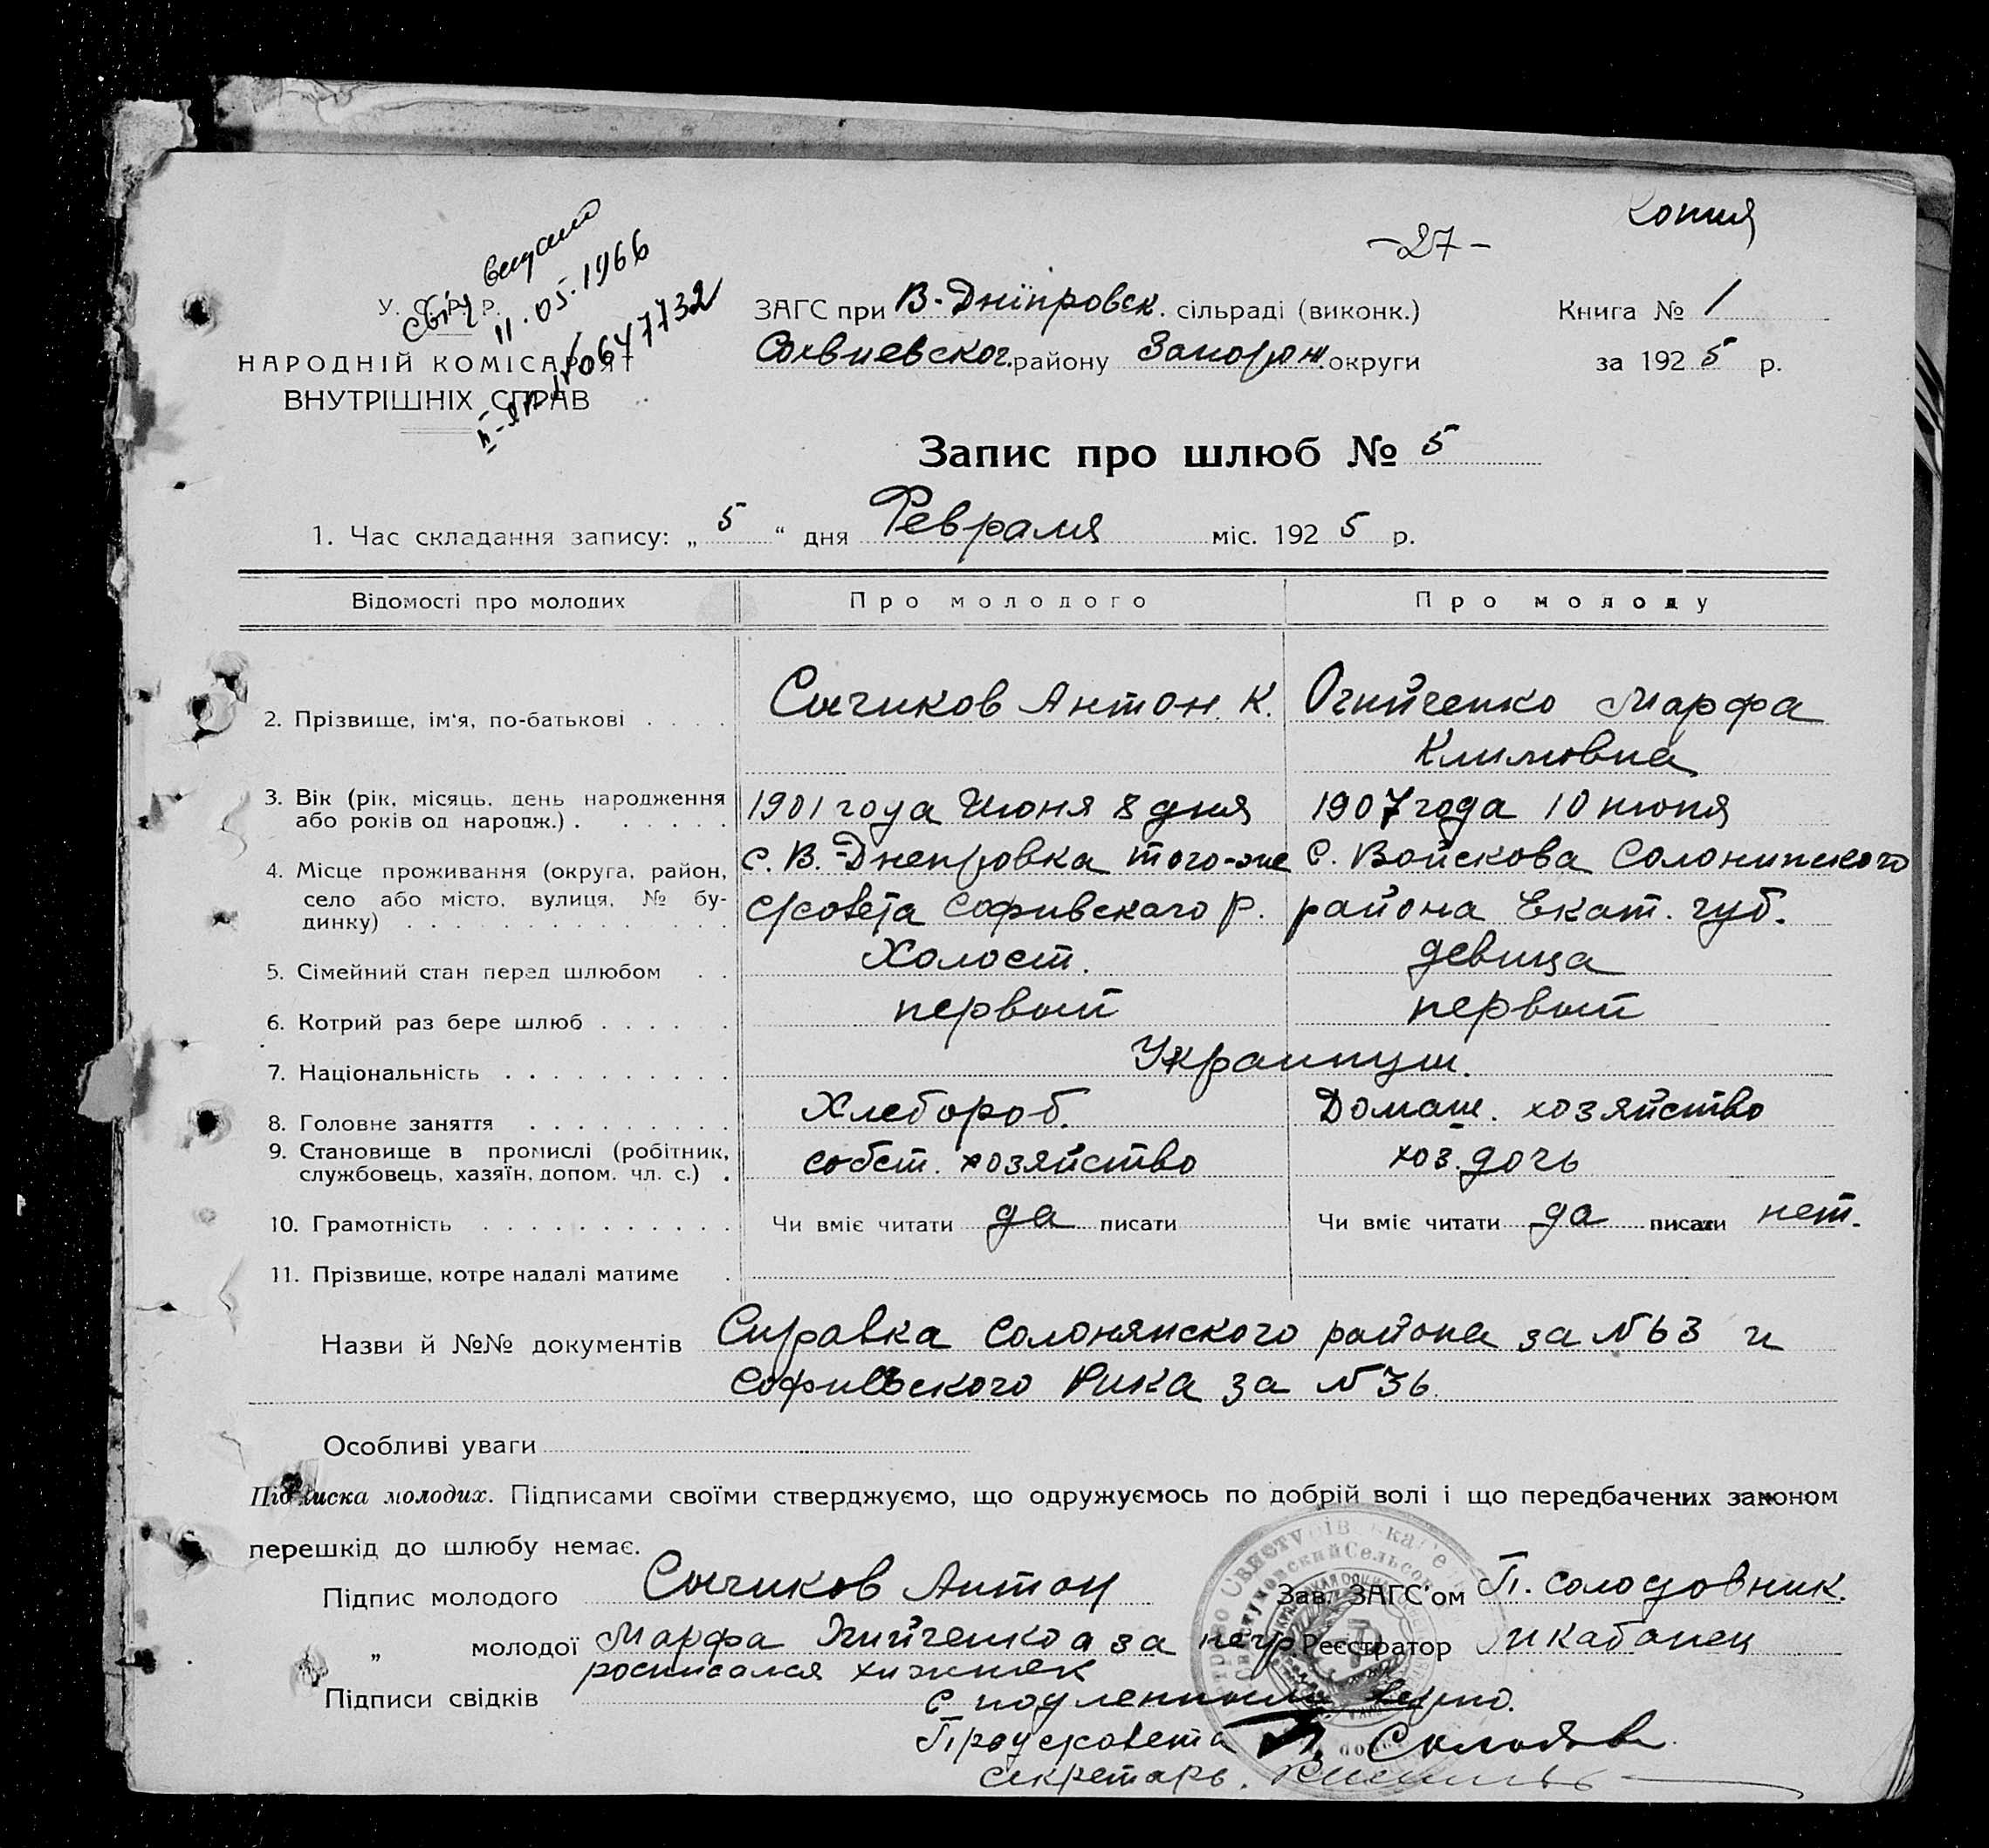 Копия
-27-
У. С. Р. Р.
Свід. видано
11.05.1966
НАРОДНІЙ КОМІСАРІЯТ
ВНУТРІШНІХ СПРАВ
ЗАГС при В-Дніпровск. сільраді (виконк.)
Софиевског. району Запорож. округи
Книга № 1
за 1925 р.
Запис про шлюб № 5
1. Час складання запису: „ 5 “ дня Февраля міс. 1925 р.
Відомості про молодих Про молодого Про молоду
2. Прізвище, ім'я, по-батькові . . . . Сычиков Антон. К. Огнийченко Марфа
Климовна
3. Вік (рік, місяць, день народження
або років од народж.) . . . . . . 1901 года Июня 8 дня 1907 года 10 июня
4. Місце проживання (округа, район,
село або місто, вулиця, № бу-
динку) . . . . . . . . . . . . . . .
с. В.-Днепровка того-же с. Войскова Солонинского
с/совета Софивскаго р. района Екат. губ.
5. Сімейний стан перед шлюбом . . Холост. девица
6. Котрий раз бере шлюб . . . . . первый первый
7. Національність . . . . . . . . . . Украинцы.
8. Головне заняття . . . . . . . . . Хлебороб. Домаш. хозяйство
9. Становище в промислі (робітник,
службовець, хазяїн, допом. чл. с.) . собст. хозяйство хоз. дочь
10. Грамотність . . . . . . . . . . . Чи вміє читати да писати Чи вміє читати да писати нет.
11. Прізвище, котре надалі матиме .
Назви й №№ документів Справка Солонянского района за N 63 и
Софиевского Рика за N 36
Особливі уваги
Підписка молодих. Підписами своїми стверджуємо, що одружуємось по добрій волі і що передбачених законом
перешкід до шлюбу немає.
Підпис молодого Сычиков Антон Зав. ЗАГС'ом П. Солодовник.
„ молодої Марфа Огнийченко а за негр. Реєстратор Кабанец
росписался
Підписи свідків
с подленным верно.
Пред с/совета
Секретарь.